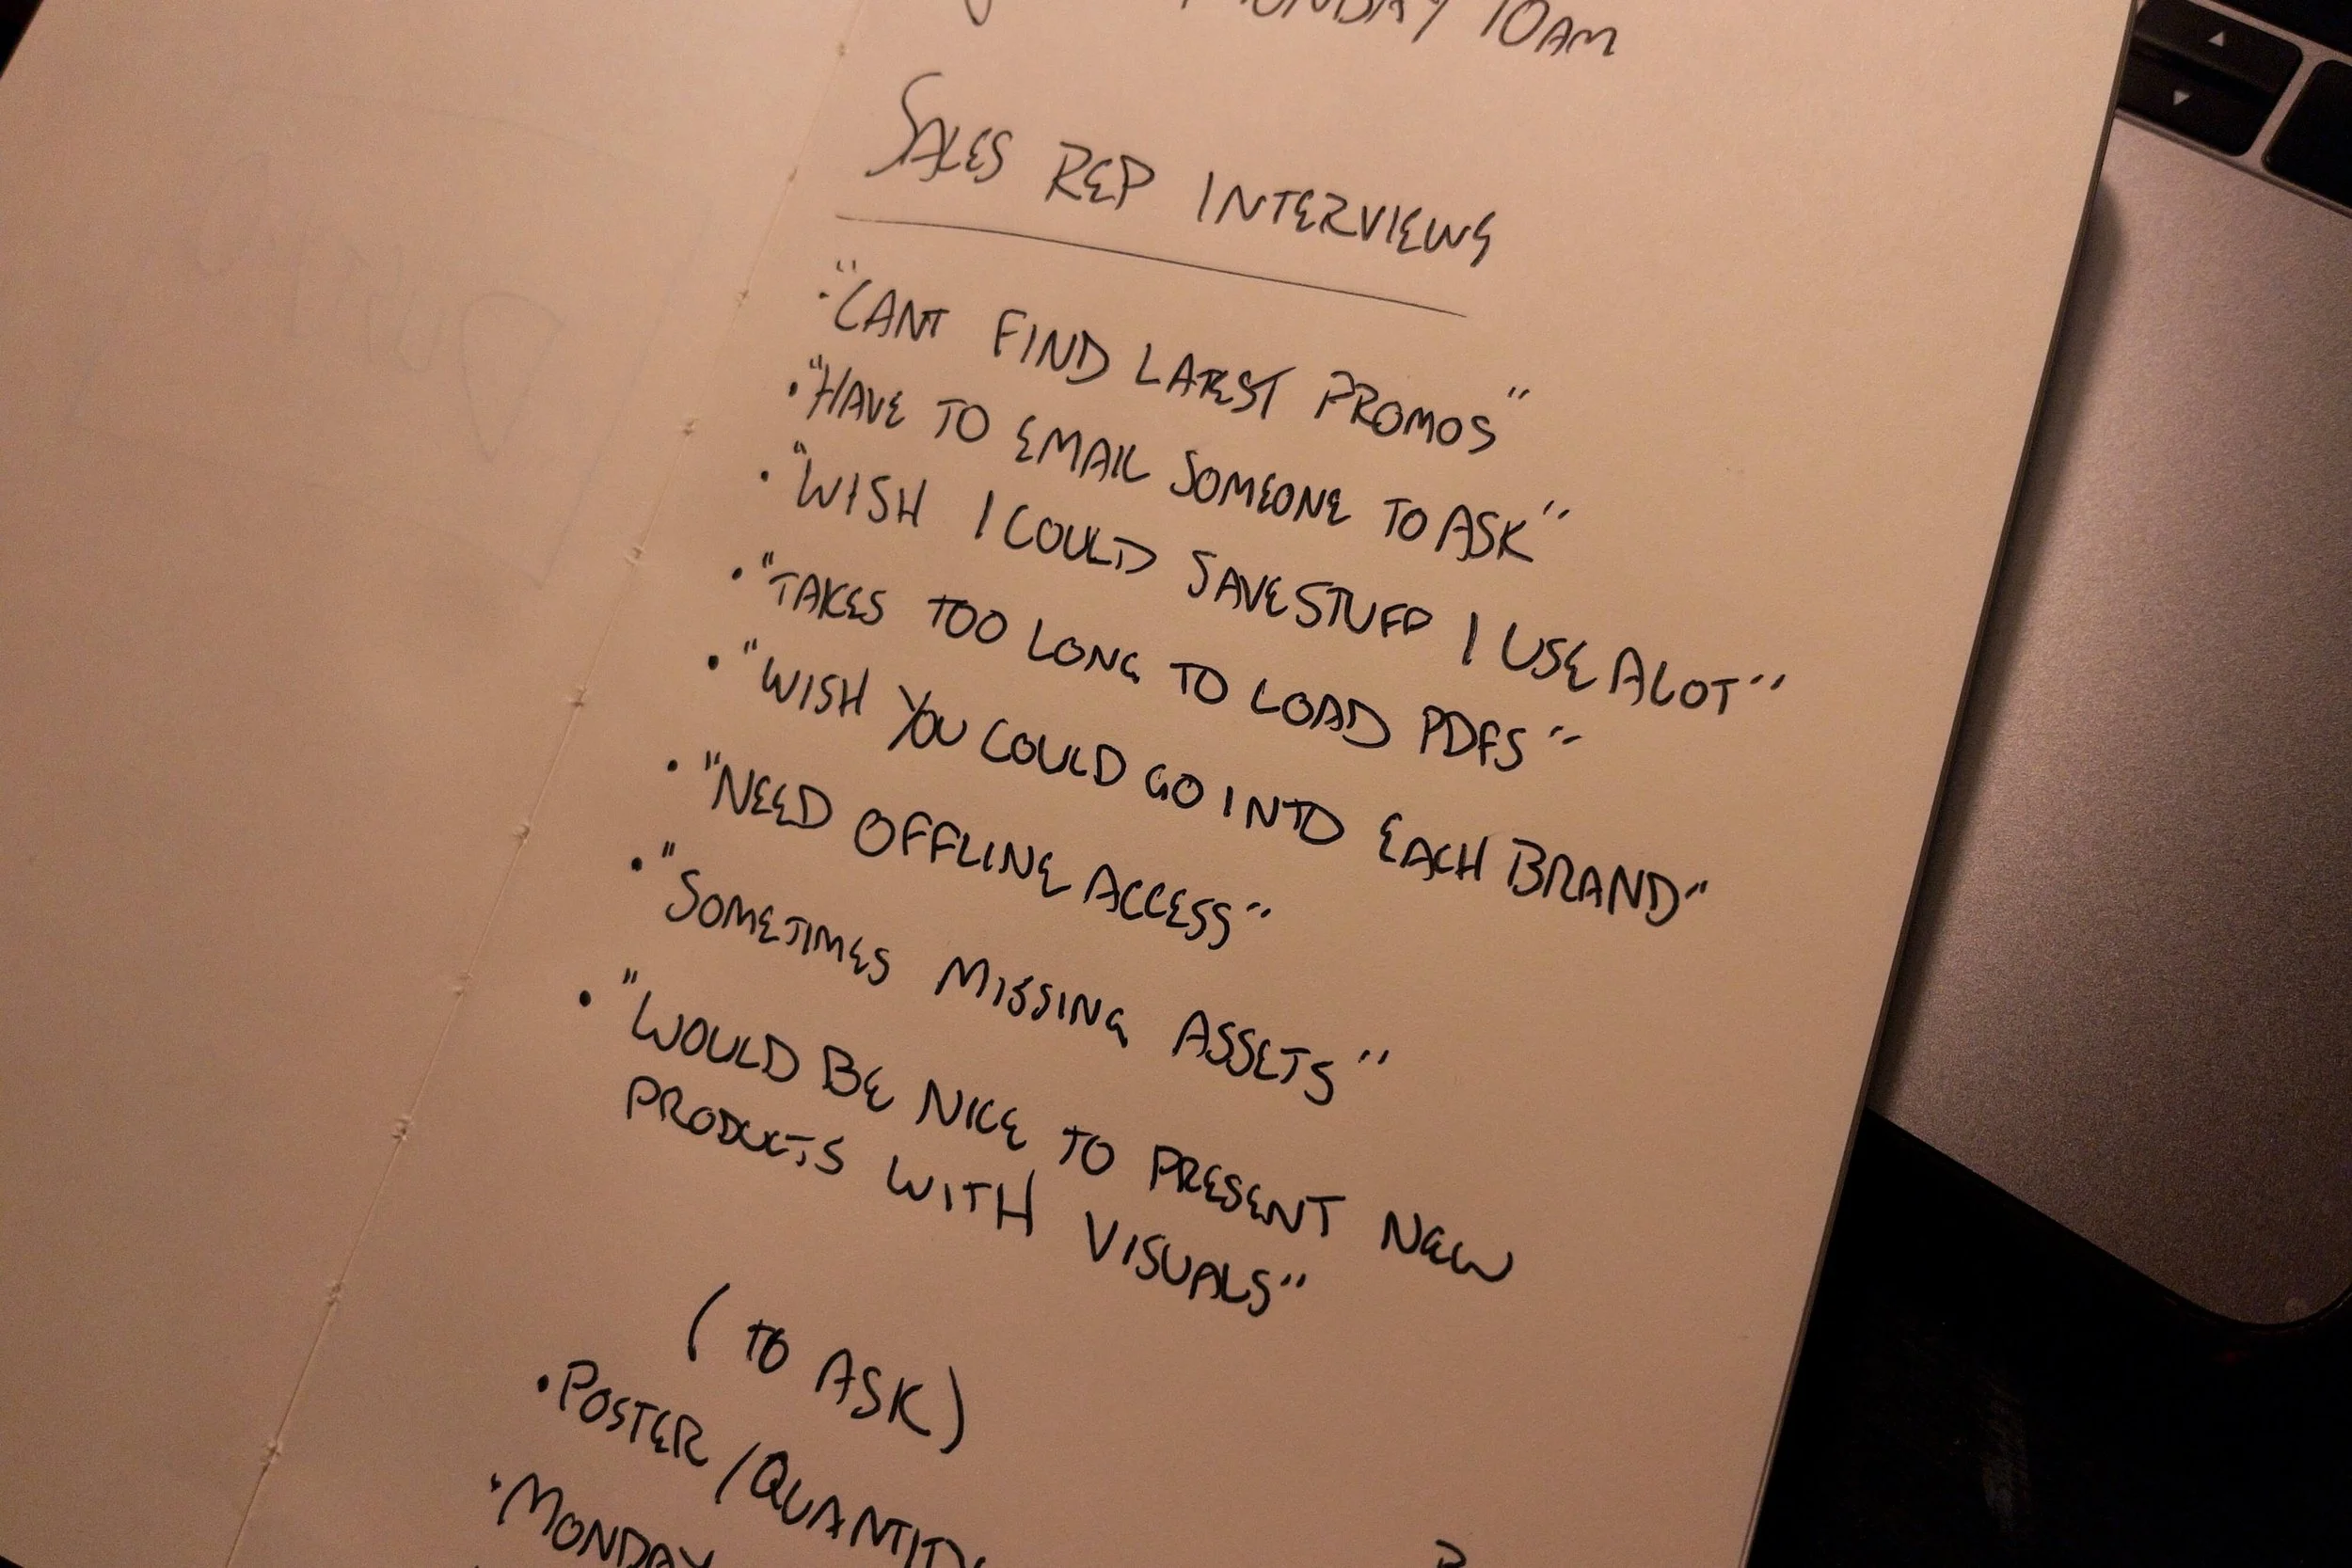 MONDAY 10AM
SALES REP INTERVIEWS
· "CANT FIND LATEST PROMOS"
· "HAVE TO EMAIL SOMEONE TO ASK"
· "WISH I COULD SAVE STUFF I USE ALOT"
· "TAKES TOO LONG TO LOAD PDFS"
· "WISH YOU COULD GO INTO EACH BRAND"
· "NEED OFFLINE ACCESS"
· "SOMETIMES MISSING ASSETS"
· "WOULD BE NICE TO PRESENT NEW
PRODUCTS WITH VISUALS"
(TO ASK)
· POSTER / QUANTITY
· MONDAY